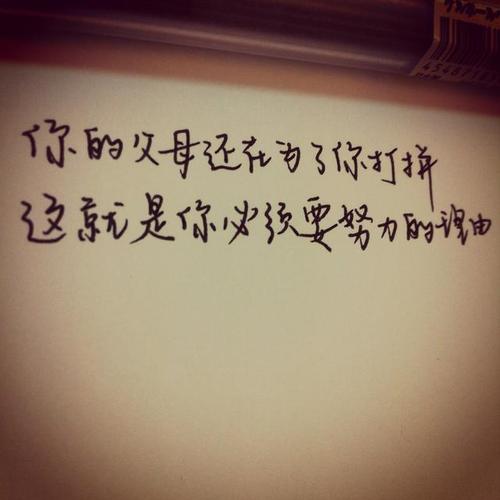 你的父母还在为了你打拼
这就是你必须要努力的理由